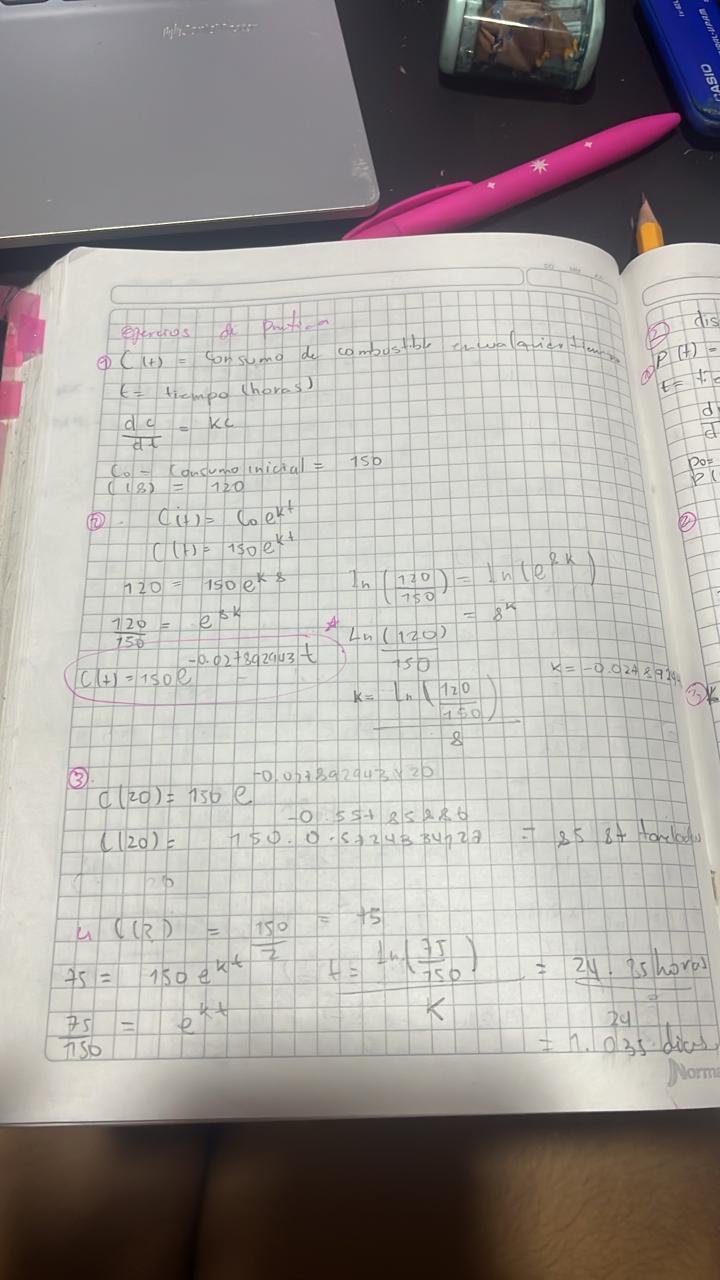 CASIO
Ejercicios de pratica
① C(t) = Consumo de combustible en cualquier tiempo
t = tiempo (horas)
dc/dt = kc
Co - Consumo inicial = 150
C(8) = 120
② C(t) = Co e^kt
C(t) = 150e^kt
120 = 150e^k8
120/150 = e^8k
C(t) = 150e^-0.027892943 t
ln(120/150) = ln(e^8k)
Ln(120)/150 = 8k
k = Ln(120/150)/8
k = -0.0278929
③
C(20) = 150 e^-0.027892943 x 20
C(20) = 150. -0.55785886 = 85.87 toneladas
4 C(?) = 150/2 = 75
75 = 150e^kt
75/150 = e^kt
t = ln(75/150)/K = 24.85 horas
24
= 1.035 dias
Norma
② dis
① P(t) =
t =
d
Po=
P(
②
③ k